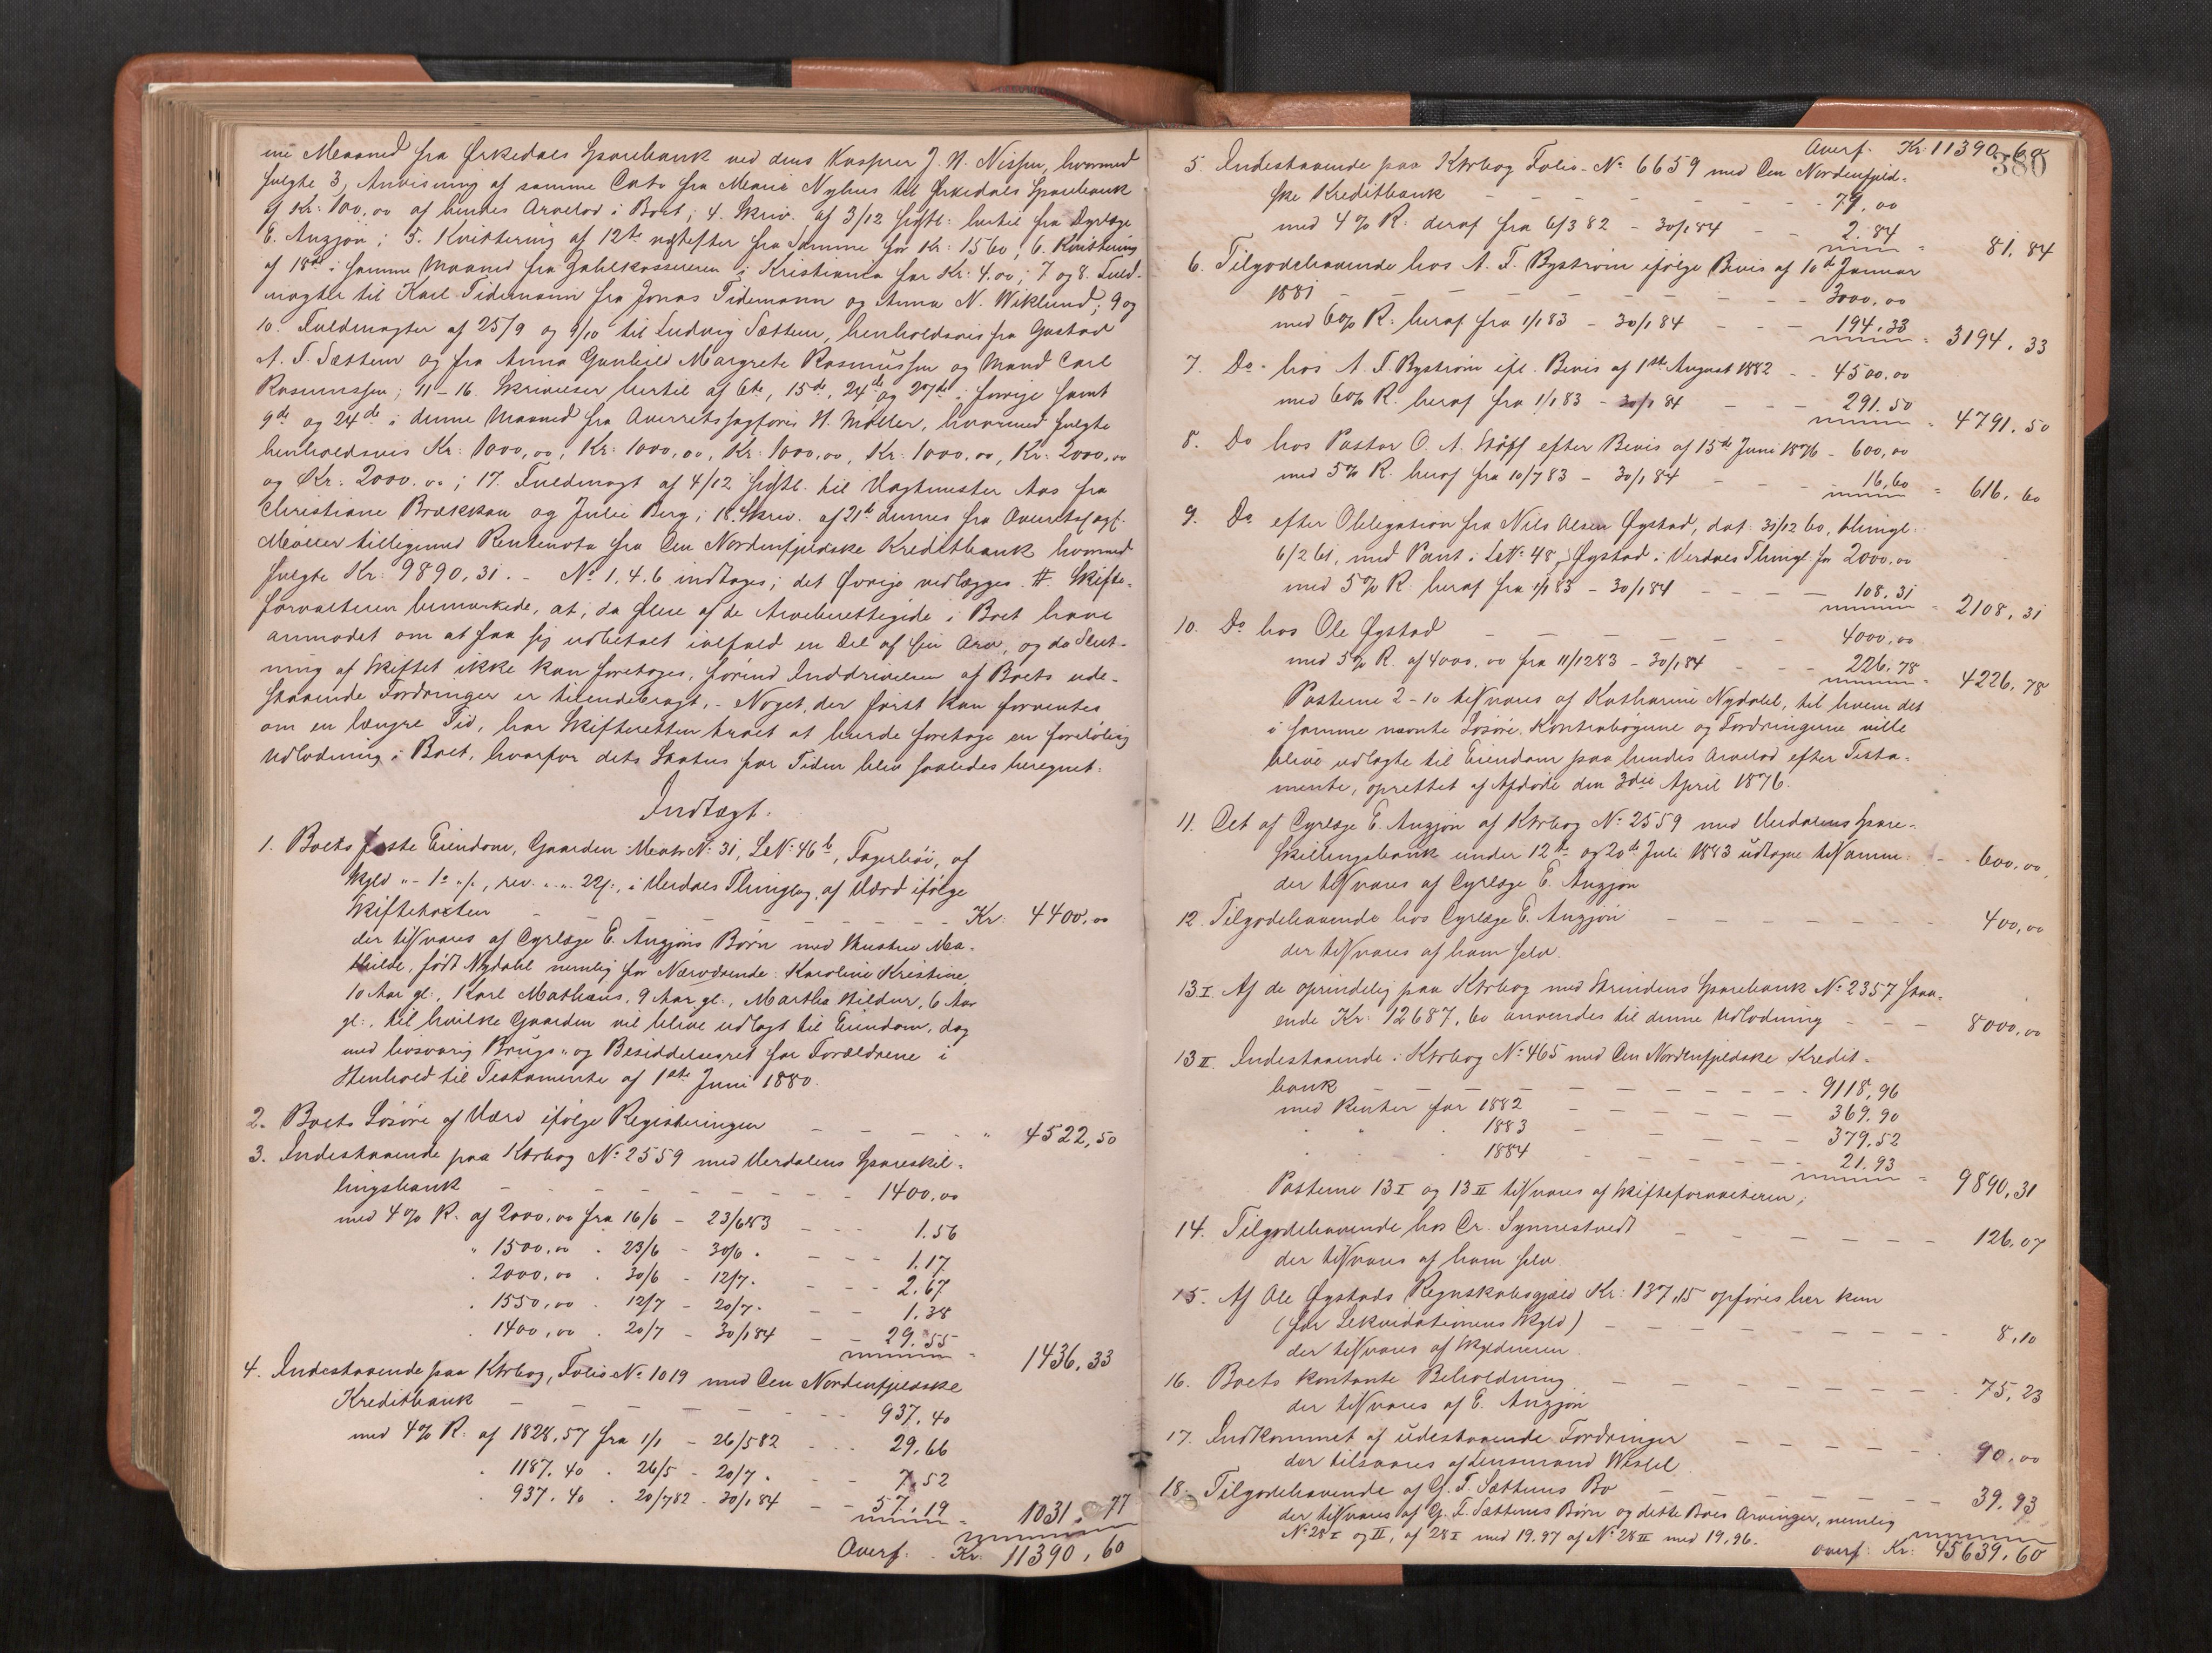 ene Maaned fra Ørkedals Sparebank ved dens Kasserer J. N. Nissen, hvormed
fulgte 3, Anvisning af samme Dato fra Marie Nyhus til Ørkedals Sparebank
af Kr: 100,00 af hendes Arvelod i Boet; 4. Skriv. af 3/12 sidstl. hertil fra Dyrlæge
E. Anzjøn; 5. Kvittering af 12te næstefter fra Samme for Kr: 1560; 6. Kvittering
af 18de i samme Maaned fra Zahlkassereren i Kristiania for Kr: 4.00; 7 og 8. Fuld-
magter til Karl Tidemann fra Jonas Tidemann og Anna N. Wiklund; 9 og
10. Fuldmagter af 25/9 og 9/10 til Ludvig Sættem, henholdsvis fra Gustav
A. T. Sættem og fra Anna Gunhild Margrete Rasmussen og Mand Carl
Rasmussen; 11-16. Skrivelser hertil af 6te, 15de, 24de og 27de i forrige samt
9de og 24de i denne Maaned fra Overretssagfører N. Møller, hvormed fulgte
henholdsvis Kr: 1000,00, Kr: 1000,00, Kr: 1000,00, Kr: 1000,00, Kr: 2000,00
og Kr: 2000.00; 17. Fuldmagt af 4/12 sidstl. til Vagtmester Aas fra
Christiane Brækkan og Julie Berg; 18. Skriv. af 21de dennes fra Overretssagf.
Møller tilligemed Rentenota fra Den Nordenfjeldske Kreditbank hvormed
fulgte Kr: 9890,31. - No 1.4.6 indtages; det Øvrige vedlægges #. Skifte-
forvalteren bemærkede, at, da flere af de Arveberettigede i Boet have
anmodet om at faa sig udbetalt ialfald en Del af sin Arv, og da Slut-
ning af Skiftet ikke kan foretages, førend Inddrivelsen af Boets ude-
staaende Fordringer er tilendebragt, - Noget, der først kan forventes
om en længre Tid, har Skifteretten troet at burde foretage en foreløbig
Udlodning i Boet, hvorfor dets Status for Tiden blev saaledes beregnet:
Indtægt.
1. Boets faste Eiendom, Gaarden Matr No 31, LNo 46b, Fagerhøi, af
Skyld „ - 1 „ /., rev. „ „ 22/., i Verdals Thinglag, af Værd ifølge
Skiftetaxten - - - Kr: 4400,00
der tilsvares af Dyrlæge E. Anzjøns Børn med Hustru Ma-
thilde, født Nydahl nemlig for Nærværende: Karoline Kristine,
10 Aar gl., Karl Mathæus, 9 Aar gl., Martha Hildur, 6 Aar
gl., til hvilke Gaarden vil blive udlagt til Eiendom, dog
med hosvarig Brugs- og Besiddelsesret for Forældrene i
Henhold til Testamente af 1ste Juni 1880.
2. Boets Løsøre af Værd ifølge Registeringen - - - „ 4522,50
3. Indestaaende paa Ktrbog No 2559 med Verdalens Spareskil-
lingsbank - - - 1400,00
med 4% R. af 2000,00 fra 16/6 - 23/6 83 - - - 1.56
„ 1500,00 . 23/6 - 30/6 . - - - 1.17
. 2000,00 . 30/6 - 12/7. - - - 2,67
. 1550,00 . 12/7 - 20/7. - - 1.38
. 1400,00 . 20/7 - 30/1 84 - - 29.55 = 1436,33
4. Indestaaende paa Ktrbog, Folio No 1019 med Den Nordenfjeldske
Kreditbank - - - 937,40
med 4% R. af 1828,57 fra 1/1 - 26/5 82 - - - 29,66
. 1187.40 . 26/5 - 20/7 . - - 7.52
. 937.40 . 20/7 82 - 30/1 84 - - 57,19 = 1031.77
Overf: Kr: 11390,60
380
Overf. Kr: 11390,60
5. Indestaaende paa Ktrbog Folio No 6659 med Den Nordenfjeld-
ske Kreditbank - - - 79,00
med 4% R. deraf fra 6/3 82 - 30/1 84 - - 2.84 = 81,84
6. Tilgodehavende hos A. T. Bystrøm ifølge Bevis af 10de Januar
1881 - - - 3000,00
med 6% R. heraf fra 1/1 83 - 30/1 84 - - - 194.33 = 3194,33
7. Do hos A. T. Bystrøm ifl. Bevis af 1ste August 1882 - - 4500.00
med 6% R. heraf fra 1/1 83 - 30/1 84 - - - 291.50 = 4791.50
8. Do hos Pastor O. A. Støpf efter Bevis af 15de Juni 1876 - 600,00
med 5% R. heraf fra 10/7 83 - 30/1 84 - - - 16,60 = 616,60
9. Do efter Obligation fra Nils Olsen Øgstad, dat. 31/12 60, thingl.
6/2 61, med Pant i LNo 48, Øgstad i Verdals Thingl. for 2000,00
med 5% R. heraf fra 1/1 83 - 30/1 84 - - - 108.31 = 2108,31
10. Do hos Ole Øgstad - - - 4000,00
med 5% R. af 4000,00 fra 11/12 83 - 30/1 84 - - - 226.78 = 4226,78
Posterne 2-10 tilsvares af Katharine Nydahl, til hvem det
i samme nævnte Løsøre, Kontrabøgerne og Fordringerne ville
blive udlagte til Eiendom paa hendes Arvelod efter Testa-
mente, oprettet af Afdøde den 3die April 1876.
11. Det af Dyrlæge E. Anzjøn af Ktrbog No 2559 med Verdalens Spare-
skillingsbank under 12te og 20de Juli 1883 udtagne tilsammen - - 600,00
der tilsvares af Dyrlæge E. Anzjøn
12. Tilgodehavende hos Dyrlæge E. Anzjøn - - - 400,00
der tilsvares af ham selv.
13I. Af de oprindelig paa Ktrbog med Strindens Sparebank No 2357 staa-
ende Kr: 12687,60 anvendes til denne Udlodning - - - 8000,00
13II. Indestaaende i Ktrbog No 465 med Den Nordenfjeldske Kredit-
bank - - - 9118,96
med Renter for 1882 - - - 369.90
„ „ . 1883 - - - 379.52
. . . 1884 - - - 21.93 = 9890,31
Posterne 13I og 13II tilsvares af Skifteforvalteren;
14. Tilgodehavende hos Dr. Synnestvedt - - - 126,07
der tilsvares af ham selv.
15. Af Ole Øgstads Regnskabsgjæld Kr: 137,15 opføres her kun
(for Likvidationens Skyld) - - - 8,10
der tilsvares af Skyldneren.
16. Boets kontante Beholdning - - - 75,23
der tilsvares af E. Anzjøn
17. Indkommet af udestaaende Fordringer - - - 90,00
der tilsvares af Lensmand Wessel
18. Tilgodehavende af G. T. Sættems Bo - - - 39.93
der tilsvares af G. T. Sættems Børn og dette Boes Arvinger, nemlig
No 28I og II, af 28I med 19,97 af No 28II med 19,96.
Overf. Kr: 45639,60